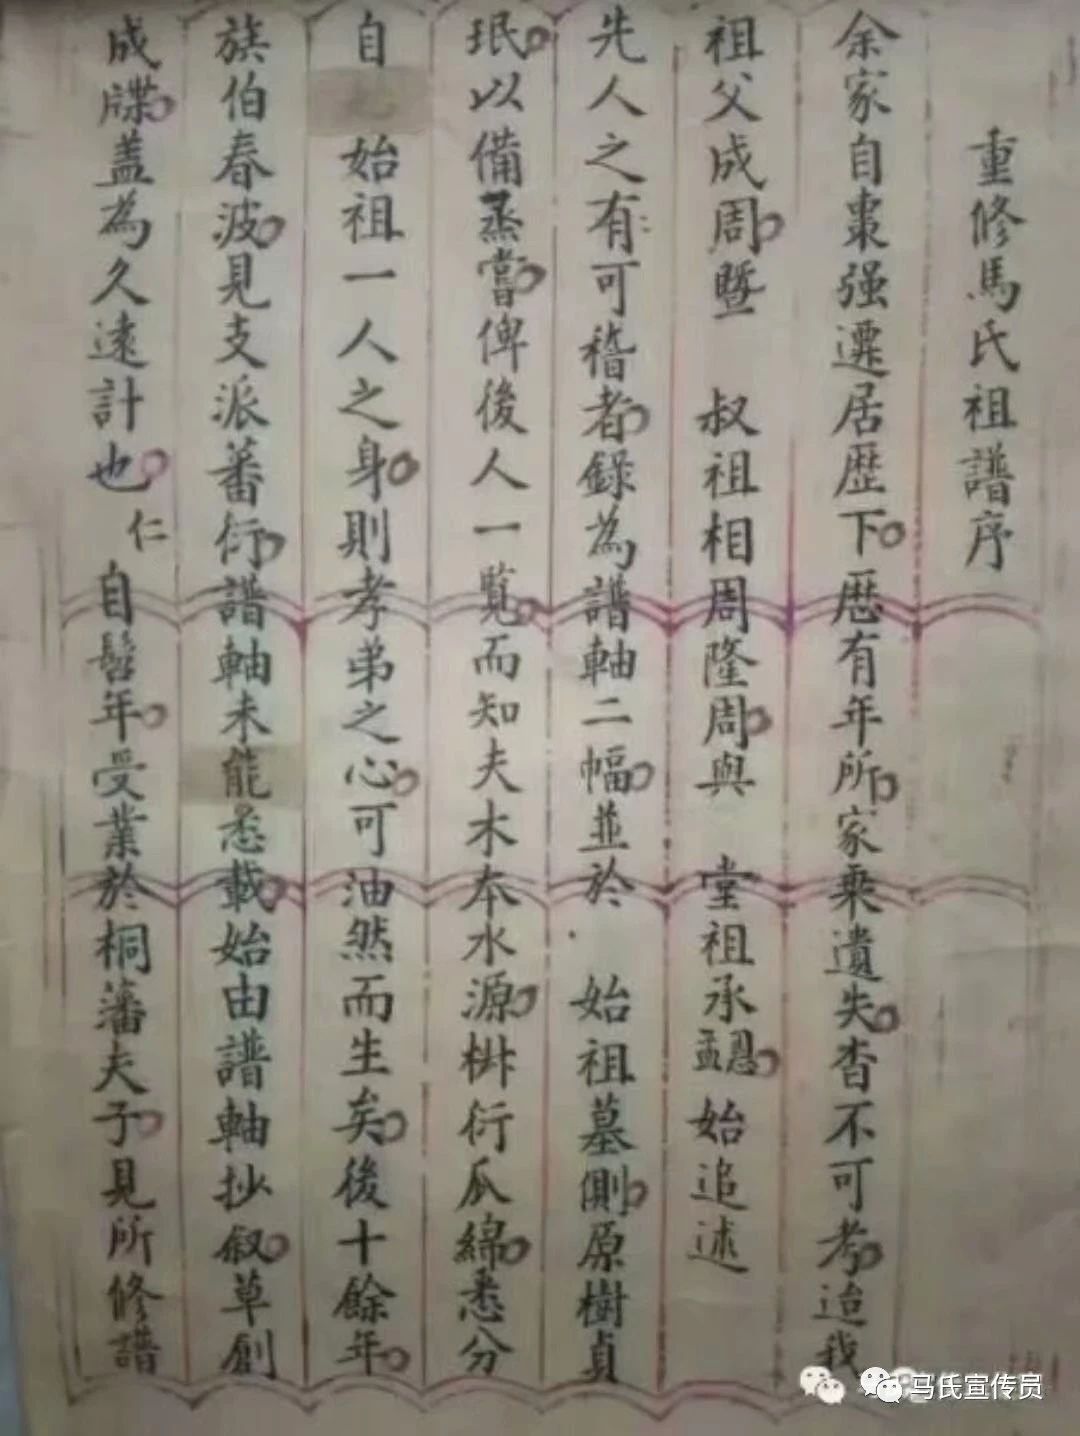 重修馬氏祖譜序
余家自棗强遷居歷下歷有年所家乘遺失杳不可考迨我
祖父成周暨 叔祖相周隆周與 堂祖承孟恩始追述
先人之有可稽者錄為譜軸二幅並於 始祖墓側原樹貞
珉以備蒸嘗俾後人一覧而知夫木本水源椒衍瓜綿悉分
自 始祖一人之身則孝弟之心可油然而生矣後十餘年
族伯春波見支派蕃衍譜軸未能悉載始由譜軸抄叙草創
成牒蓋為久遠計也仁自髫年受業於桐藩夫子見所修譜
马氏宣传员